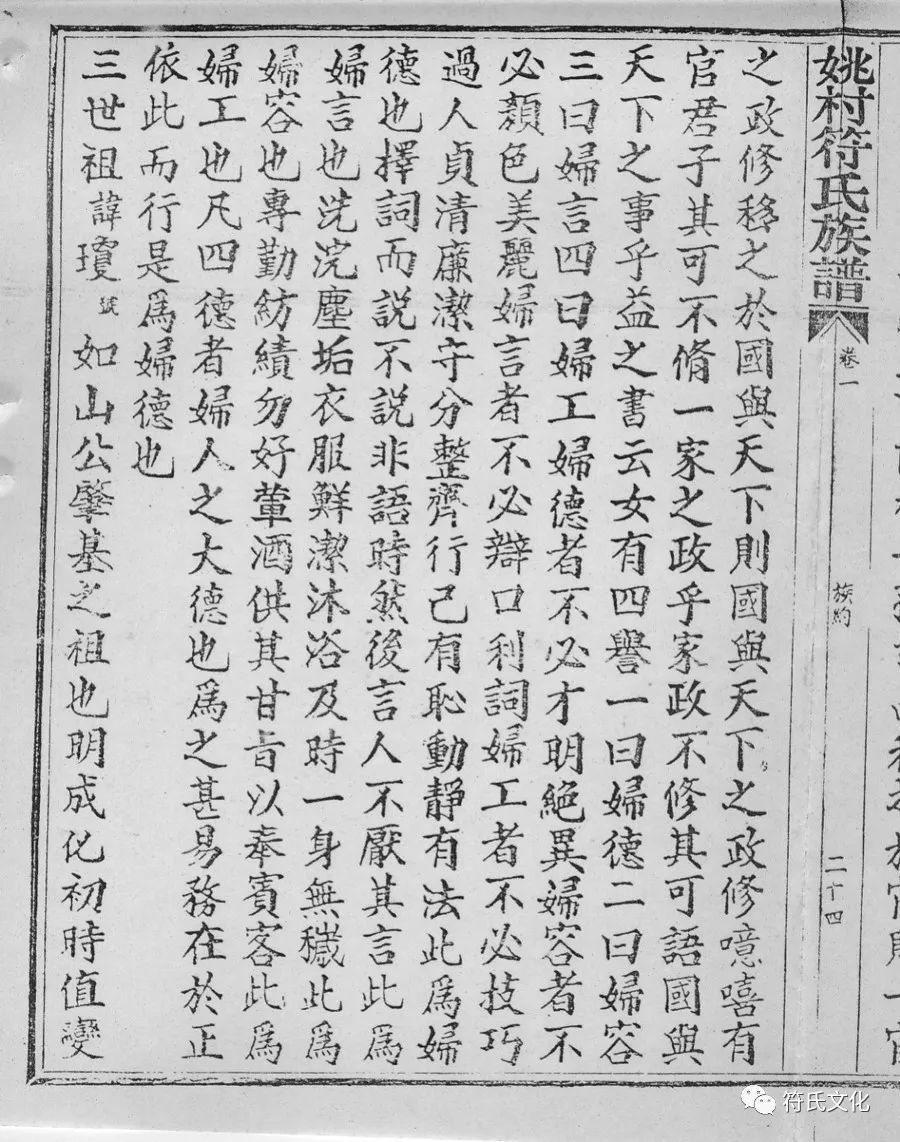 姚村符氏族譜
卷一
族約
二十四
之政修移之於國與天下則國與天下之政修噫嘻有
官君子其可不脩一家之政乎家政不修其可語國與
天下之事乎益之書云女有四譽一曰婦德二曰婦容
三曰婦言四曰婦工婦德者不必才明絕異婦容者不
必顏色美麗婦言者不必辯口利詞婦工者不必技巧
過人貞清廉潔守分整齊行己有恥動靜有法此爲婦
德也擇詞而説不説非語時然後言人不厭其言此爲
婦言也洗浣塵垢衣服鮮潔沐浴及時一身無穢此爲
婦容也專勤紡績勿好葷酒供其甘旨以奉賓客此爲
婦工也凡四德者婦人之大德也爲之甚易務在於正
依此而行是爲婦德也
三世祖諱瓊號如山公肇基之祖也明成化初時值變
符氏文化